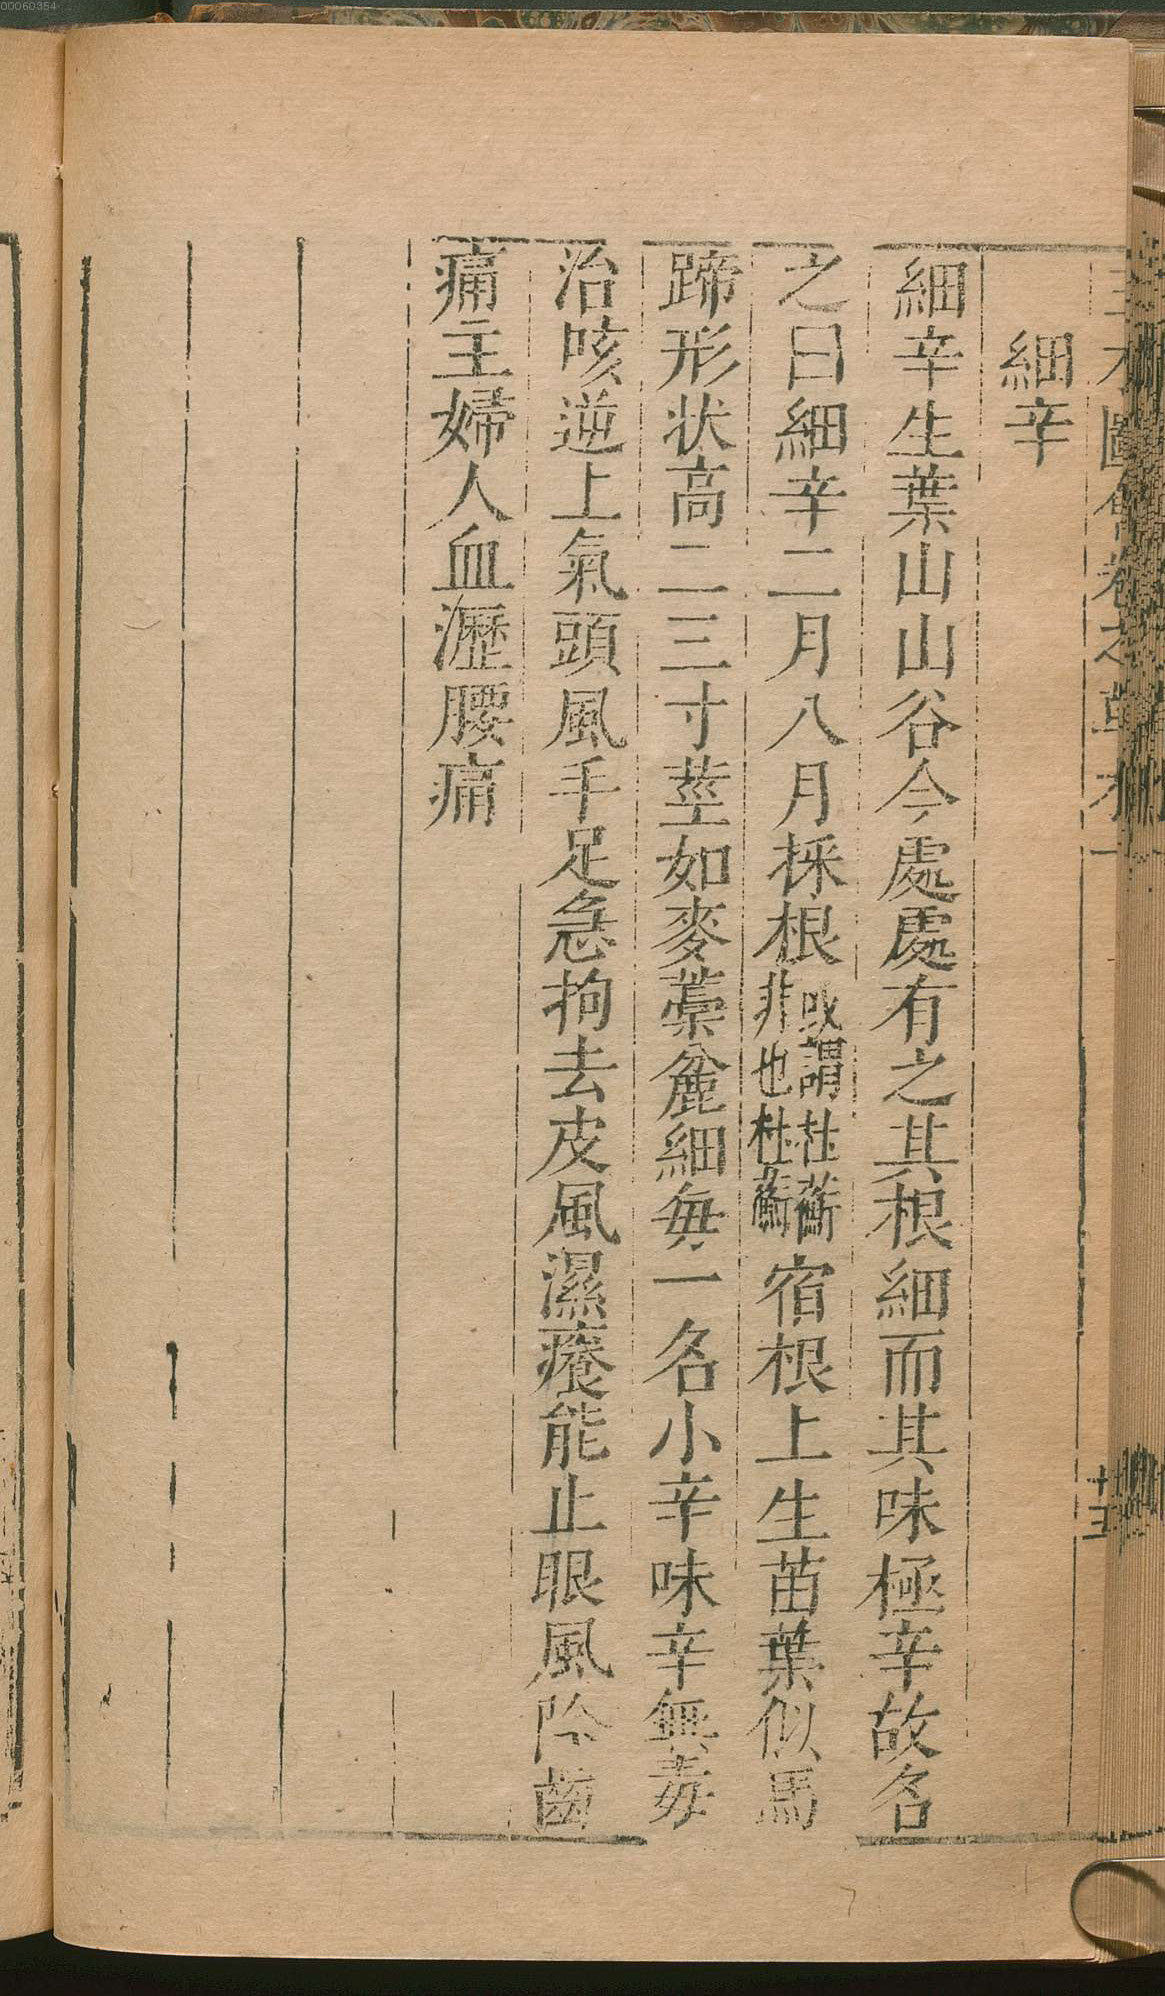 00060354
細辛
細辛生葉山山谷今處處有之其根細而其味極辛故名
之曰細辛二月八月採根或謂杜蘅非也杜蘅宿根上生苗葉似馬
蹄形状高二三寸莖如麥藁麄細每一名小辛味辛無毒
治咳逆上氣頭風手足急拘去皮風濕癢能止眼風除齒
痛主婦人血瀝腰痛